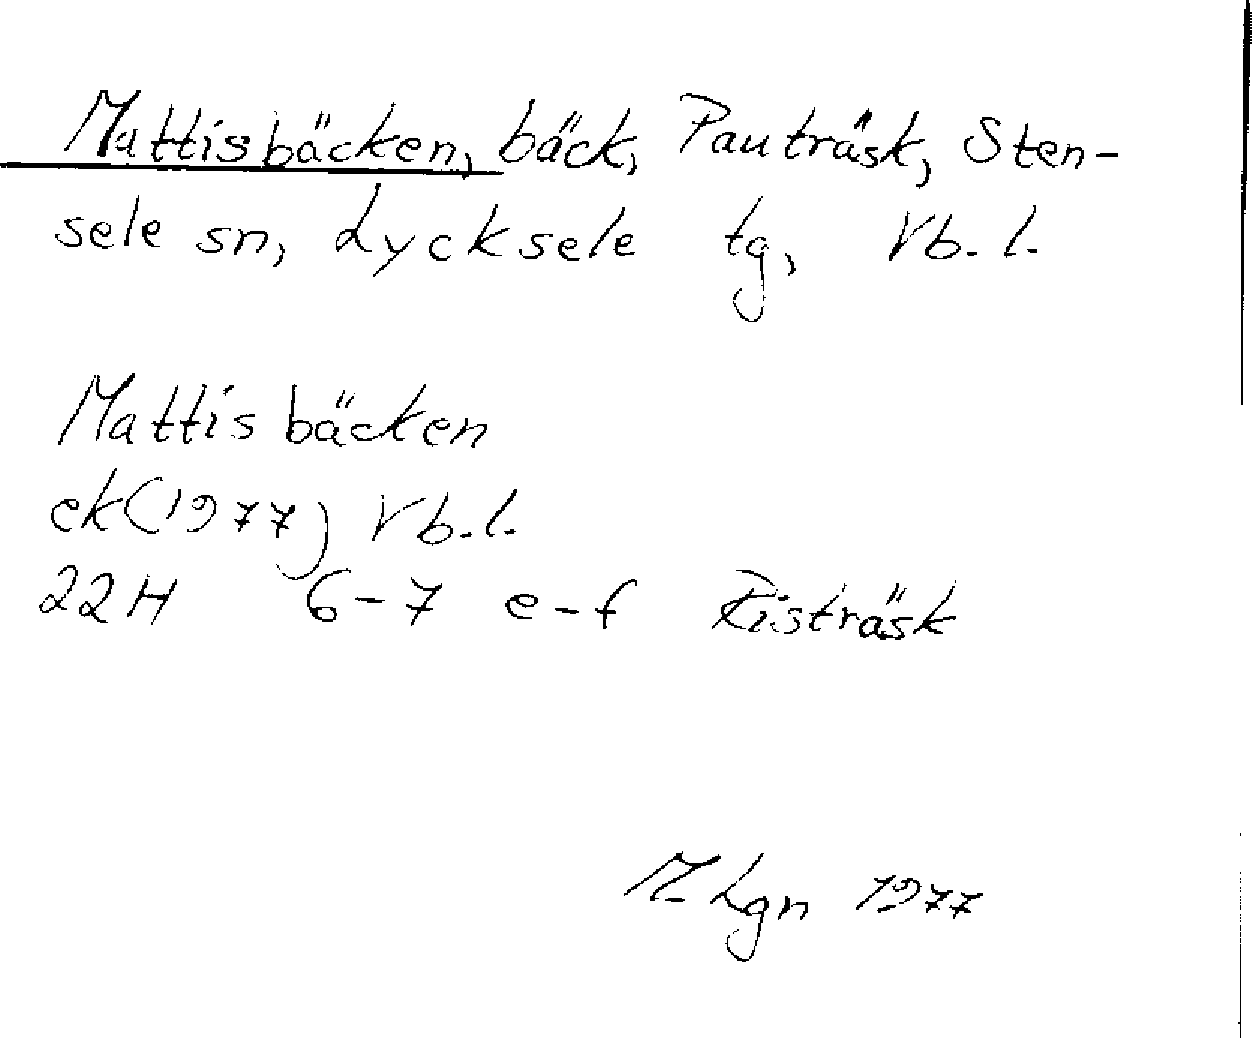 Mattisbäcken, bäck, Pauträsk, Sten-
sele sn, Lycksele tg, Vb. l.
Mattisbäcken
ek(1977) Vb. l.
22H 6-7 e-f Risträsk
M. Lgn 1977